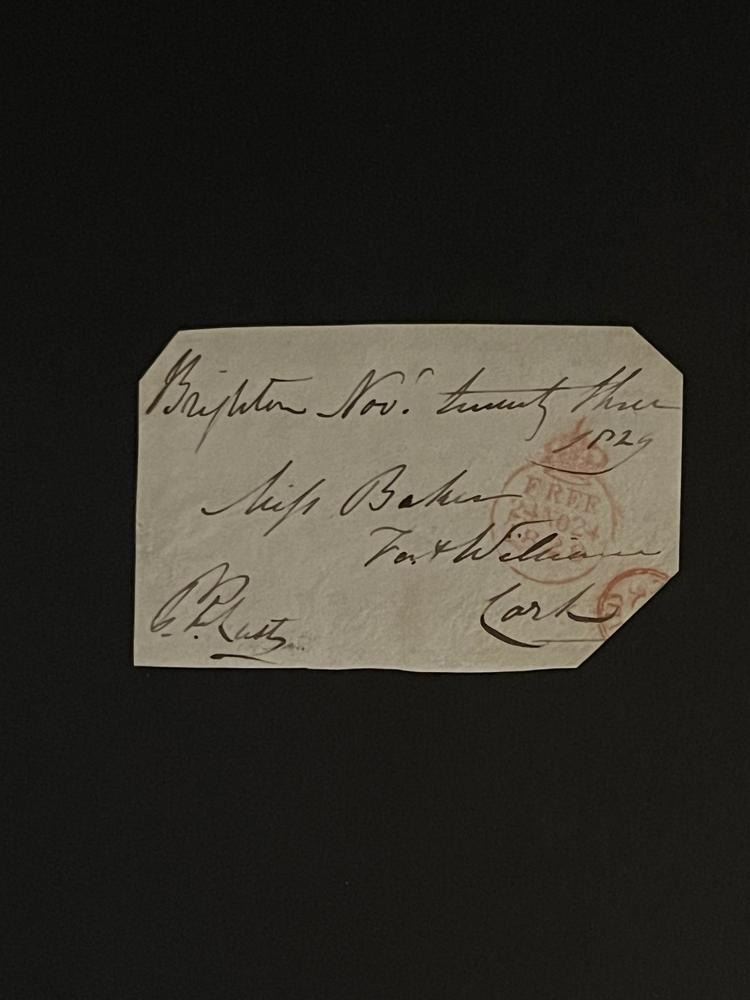 Brighton Novr twenty three
1829
Miss Baker
Fort William
Cork
FREE
24 NO 24
1829